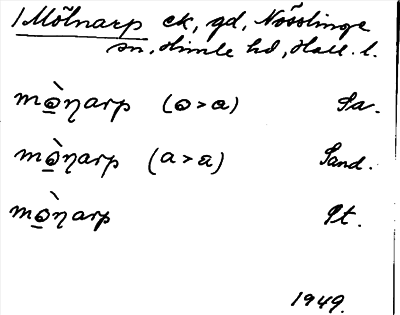 1 Mölnarp ck, gd, Nösslinge
sn, Himle hd, Hall. l.
mò̱ŋarp (o > a) Sa.
mò̱ŋarp (a > a) Sand.
mò̱ŋarp Pt.
1949.